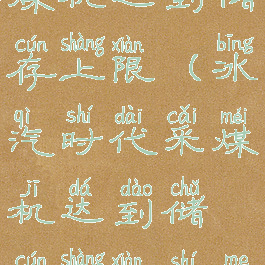 cún shàng xiàn bīng
存上限（冰
qì shí dài cǎi méi
汽时代采煤
jī dá dào chǔ
机达到储
cún shàng xiàn shí me